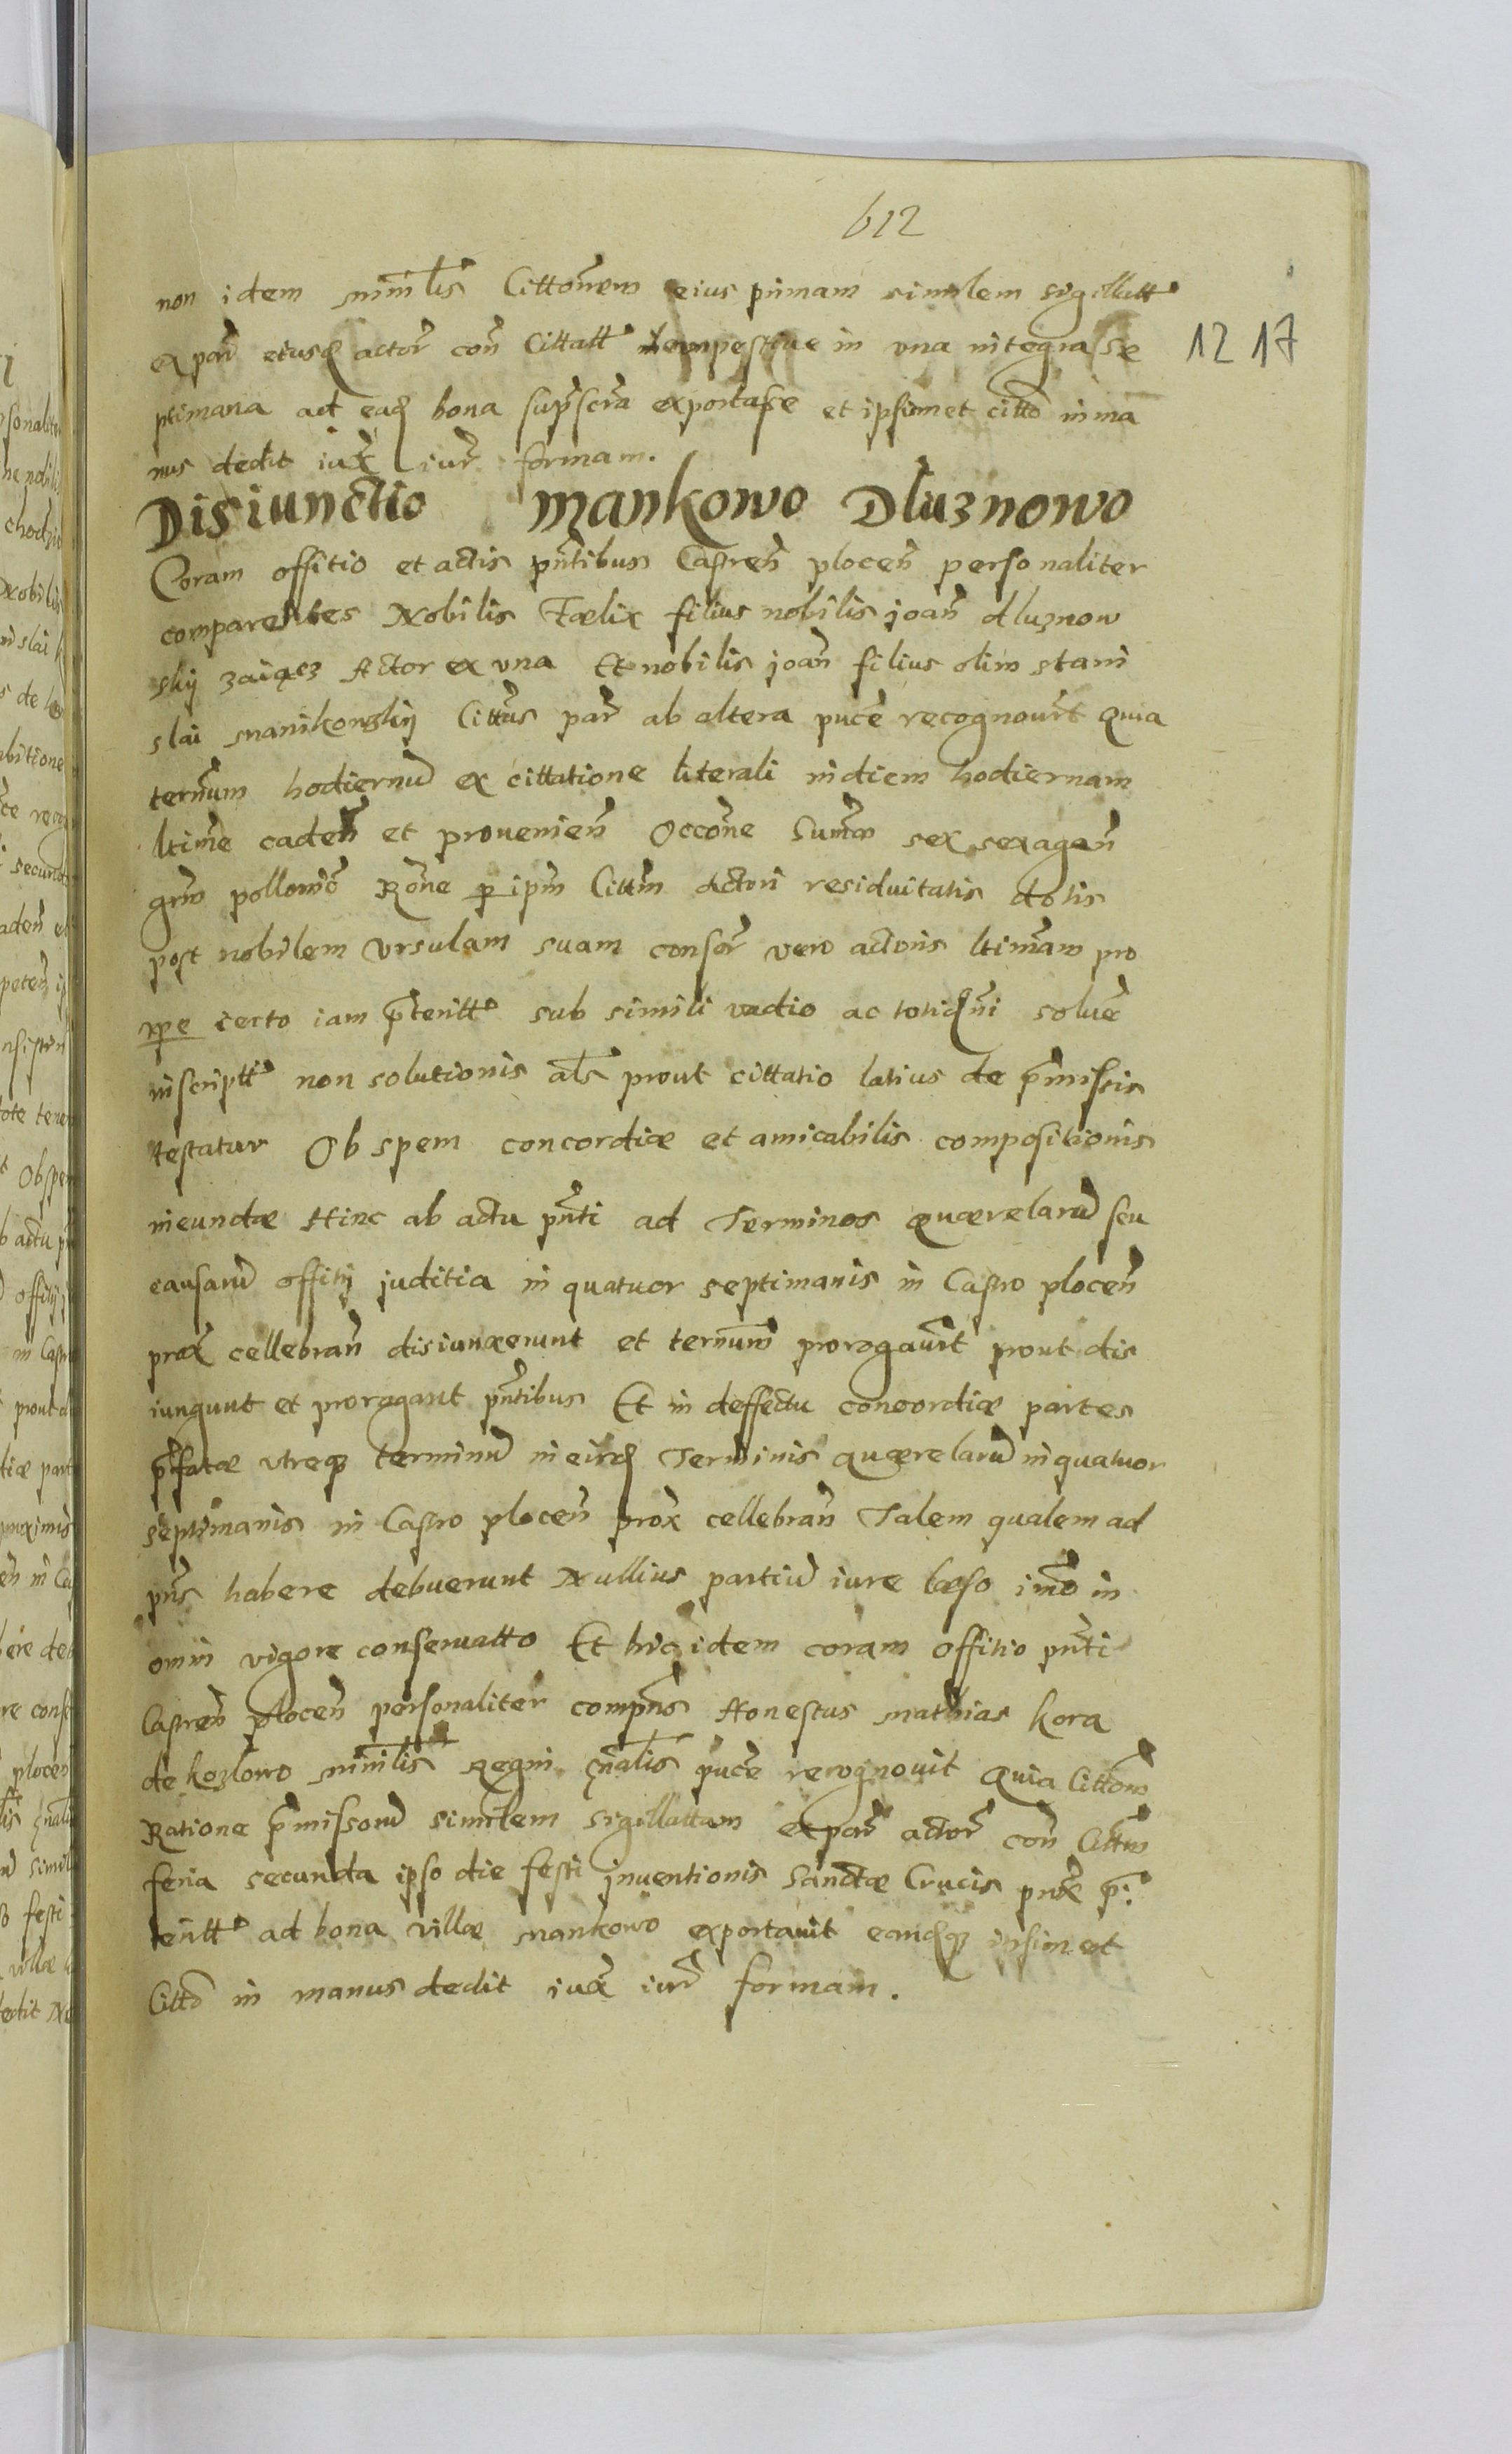 612
non idem mnĩlis Cittõnem eius pnmam similem sigillatt
ex par eiusq actor con Cittatt tempestiue in vna integra se
12 17
ptimana ad eaq bona supscra exportasse et ipsimet citto in ma
nus dedit iux iur formam.
Disiunctio Mankowo Dluznowo
Coram offitio et actis pntibus Castren plocen personaliter
comparentes Nobilis Fælix filius nobilis joan dluznow
skij zaiącz Actor ex vna Et nobilis joan filius olim stani
slai mankowskij Cittus par ab altera puce recognourt Quia
ternum hodiernu ex cittatione literali in diem hodiernam
ltime caden et prouenien Occone Summ sex sexagen
grm pollonic Rone p ipm Cittm actori residuitatis dotis
post nobilem Vrsulam suam consor vero actoris ltimam pro
certo iam pteritt sub simili vadio ac totiqni solue
inscriptt non solutionis als prout cittatio latius de pmissis
testatur Ob spem concordiæ et amicabilis compositionis
ineundæ Hinc ab actu pnti ad Terminos Quærelaru seu
causaru offitij juditia in quatuor septimanis in Castro plocen
prox cellebran disiunxerunt et ternum prorogaurt prout dis
iungunt et prorogant pntibus Et in deffectu concordiæ partes
pfatæ vtreq terminu in eisq Terminis quærelaru in quatuor
septimanis in Castro plocen prox cellebran Talem qualem ad
pns habere debuerunt Nullius partiu iure læso imo in
omni vigore conseruatto Et hic idem coram offitio pnti
Castren plocen personaliter compns Honestus mathias kora
de kozlowo mnĩlis Regni gnalis puce recognouit Quia Cittom
Ratione pmissoru similem sigillattam ex par actor con Cittm
feria secunda ipso die festi jnuentionis Sanctæ Crucis prox p:
teritt ad bona villæ mankowo exportauit eandqz ipsimet
Citto in manus dedit iux iur formam.